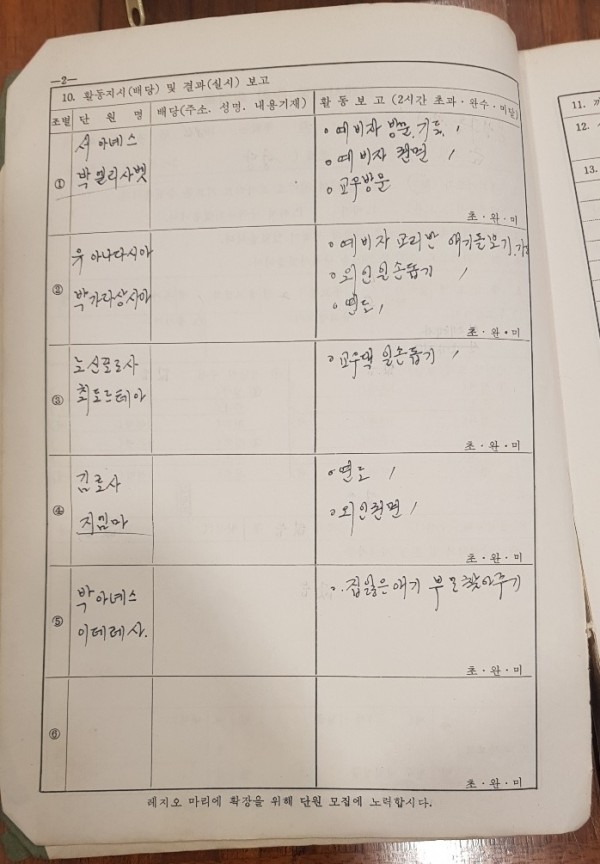 —2—
10. 활동지시(배당) 및 결과(실시) 보고
조별 단 원 명 배당(주소. 성명. 내용기재) 활 동 보 고 (2시간 초과·완수·미달)
① 서 아녜스
박엘리사벳
o 예비자 방문. 기도. /
o 예비자 권면 /
o 교우방문
초·완·미
② 우 아나다시아
o 예비자 교리반 애기돌보기.
o 외인 일손돕기 /
o 연도 /
초·완·미
③ 노신포로사
최도로테아
o 교우댁 일손돕기 /
초·완·미
④ 김로사
o 연도 /
o 외인권면 /
초·완·미
⑤ 박아녜스
이테레사.
o. 집잃은애기 부모찾아주기
초·완·미
⑥
초·완·미
레지오 마리에 확장을 위해 단원 모집에 노력합시다.
11.
12.
13.